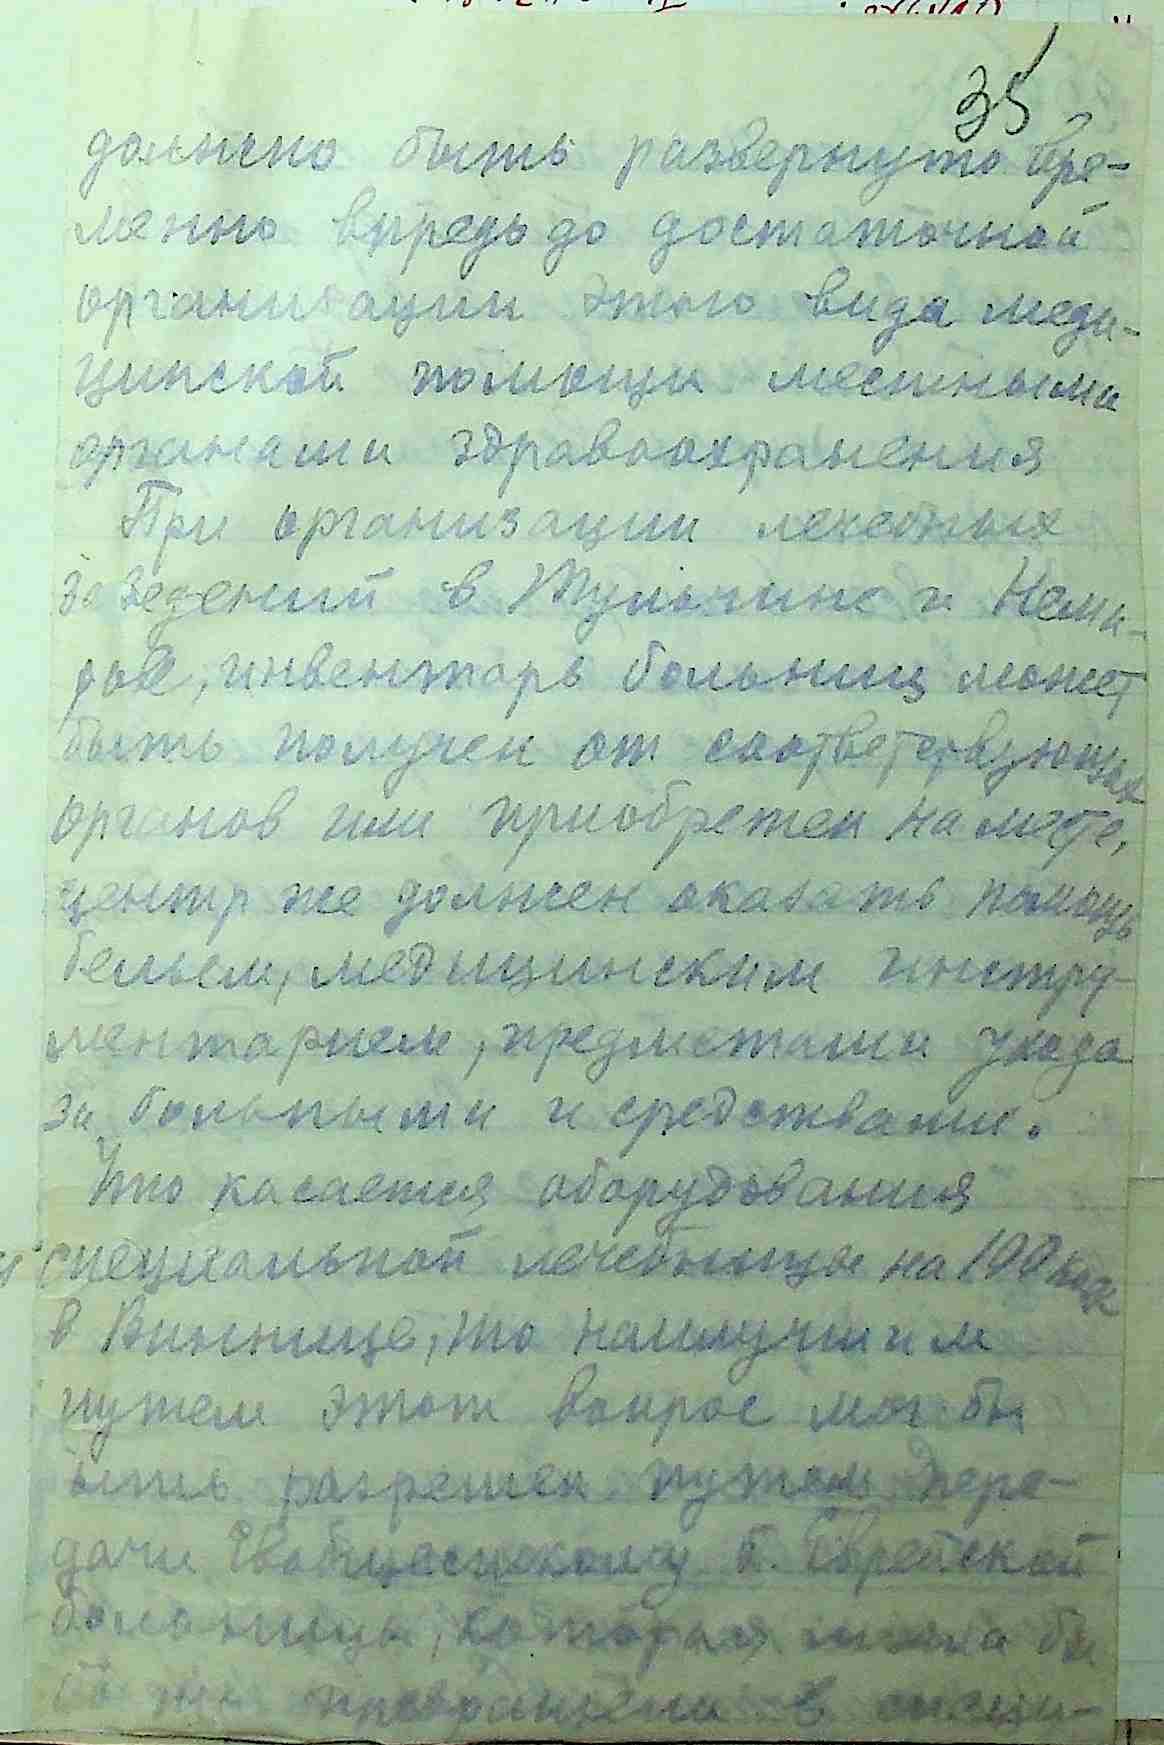 35
должно быть развернуто вре-
менно впредь до достаточной
организации этого вида меди-
цинской помощи местными
органами здравоохранения
При организации лечебных
заведений в Тульчине и Неми-
рове, инвентарь больниц может
быть получен от соответствующих
органов или приобретен на месте,
центр же должен оказать помощь
бельем, медицинским инстру-
ментарием, предметами ухода
за больными и средствами.
Что касается оборудования
специальной лечебницы на 100 коек
в Виннице, то наилучшим
путем этот вопрос мог бы
быть разрешен путем пере-
дачи Евобщесткому б. Еврейской
больницы, которая могла бы
быть превращена в специ-